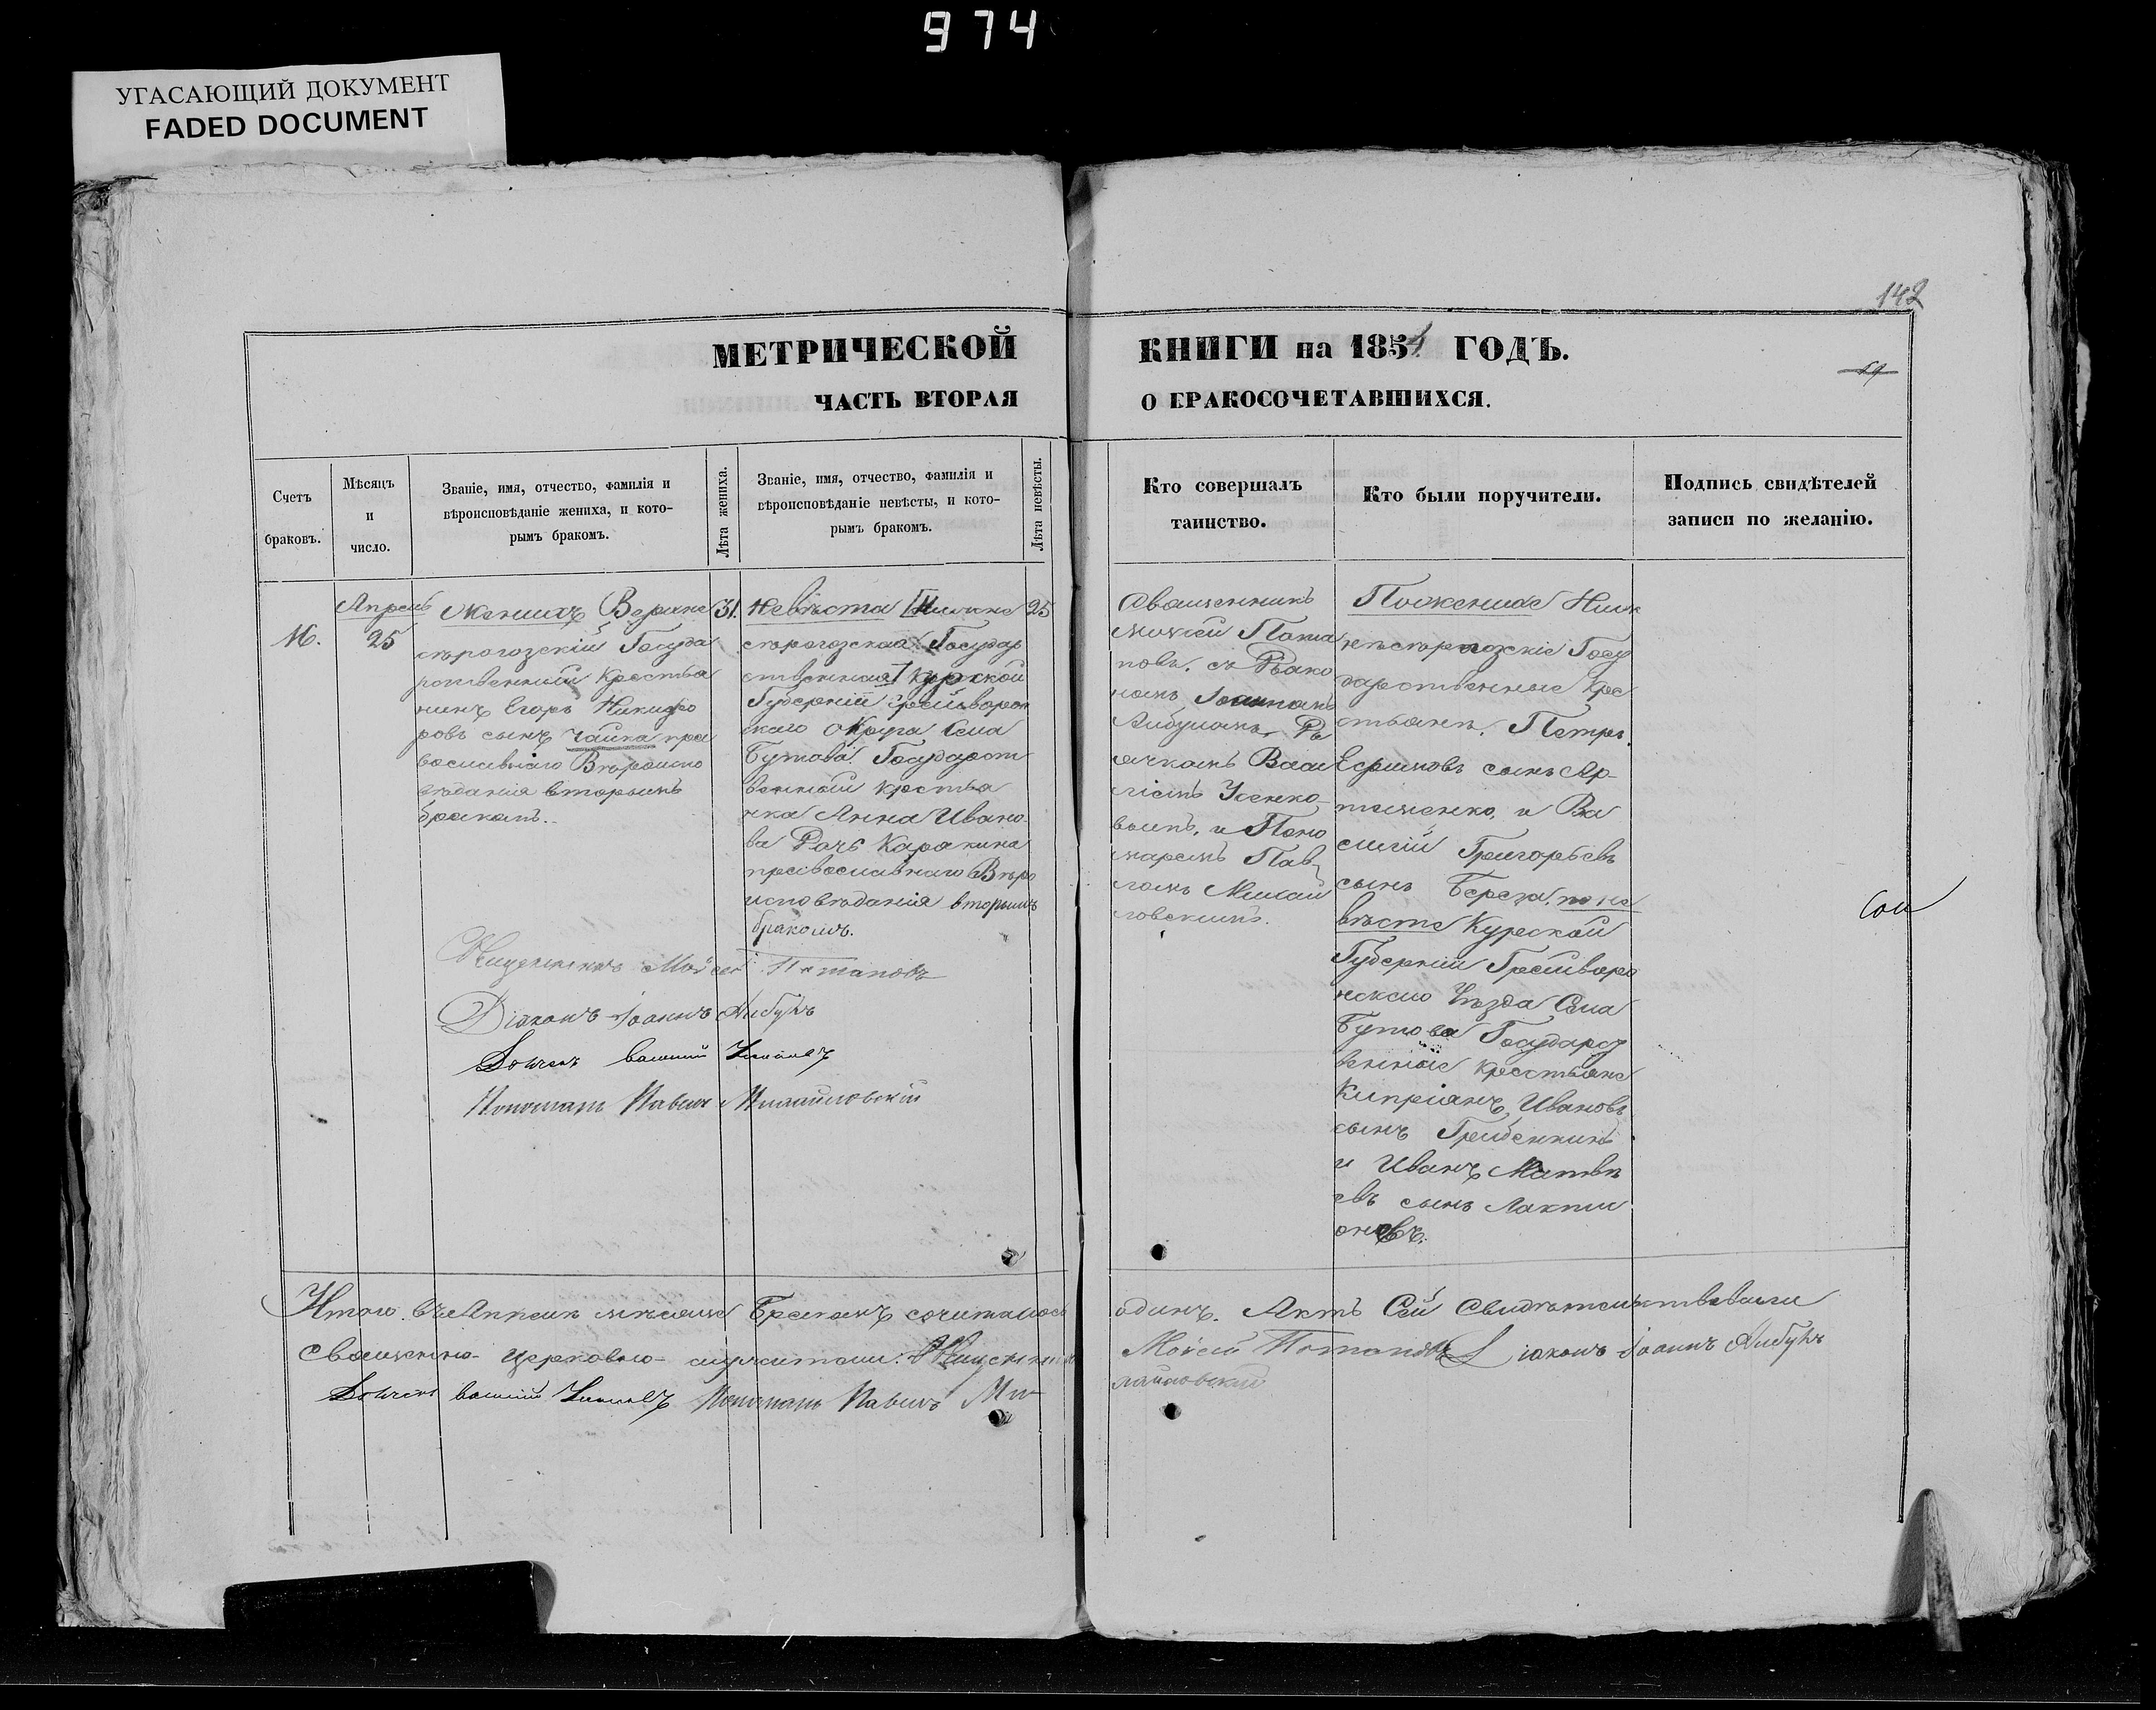 974
УГАСАЮЩИЙ ДОКУМЕНТ
FADED DOCUMENT
142
МЕТРИЧЕСКОЙ
ЧАСТЬ ВТОРАЯ
КНИГИ на 1854 ГОДЪ.
О БРАКОСОЧЕТАВШИХСЯ.
Счетъ
браковъ.
Мѣсяцъ
и
число.
Званіе, имя, отчество, фамилія и
вѣроисповѣданіе жениха, и кото-
рымъ бракомъ.
Лѣта жениха.
Званіе, имя, отчество, фамилія и
вѣроисповѣданіе невѣсты, и кото-
рымъ бракомъ.
Лѣта невѣсты.
Кто совершалъ
таинство.
Кто были поручители.
Подпись свидѣтелей
записи по желанію.
16.
Апрель
25
Женихъ Верхне
сѣрогозскій Госуда
рственный Крестья
нинъ Егоръ Никифо
ровъ сынъ Чайка пра
вославнаго Вѣроиспо
вѣданія вторымъ
бракомъ.
31.
Невѣста [Нижне
сѣрогозская Государ
ственная] Курской
Губерніи Грайворон
скаго Округа Села
Бутова Государст
венный крестья
нка Анна Ивано-
ва Дочь Каракина
православнаго Вѣро
исповѣданія вторымъ
бракомъ.
25
Священникъ
Моисей Пота
повъ, съ Діако
номъ Іоанномъ
Либуномъ, Дь
ячкомъ Васи
ліемъ Усенко-
вымъ, и Поно
маремъ Пав-
ломъ Михай
ловскимъ.
По женихе Ниж
несѣрогозскіе Госу
дарственные Кре
стьяне, Петръ
Ефимовъ сынъ Ар-
тюченко, и Ва
силій Григорьевъ
сынъ Береза, по не
вѣсте Курской
Губерніи Грайворо
нскаго Уѣзда Села
Бутова Государс
венные крестьяне
Кипріянъ Ивановъ
сынъ Гребенкинъ
и Иванъ Матвѣ
евъ сынъ Лакти
оновъ.
Священникъ Моисей Потаповъ
Діаконъ Іоаннъ Либунъ
Дьячекъ Василій
Пономарь Павелъ Михайловскій
Итого въ Апрелѣ мѣсяце Бракомъ сочиталось одинъ. Актъ Сей Свидѣтельствовали
Священно- церковно- служители: Священникъ Моисей Потаповъ Діаконъ Іоаннъ Либунъ
Дьячекъ Василій Пономарь Павелъ Ми-
хайловскій